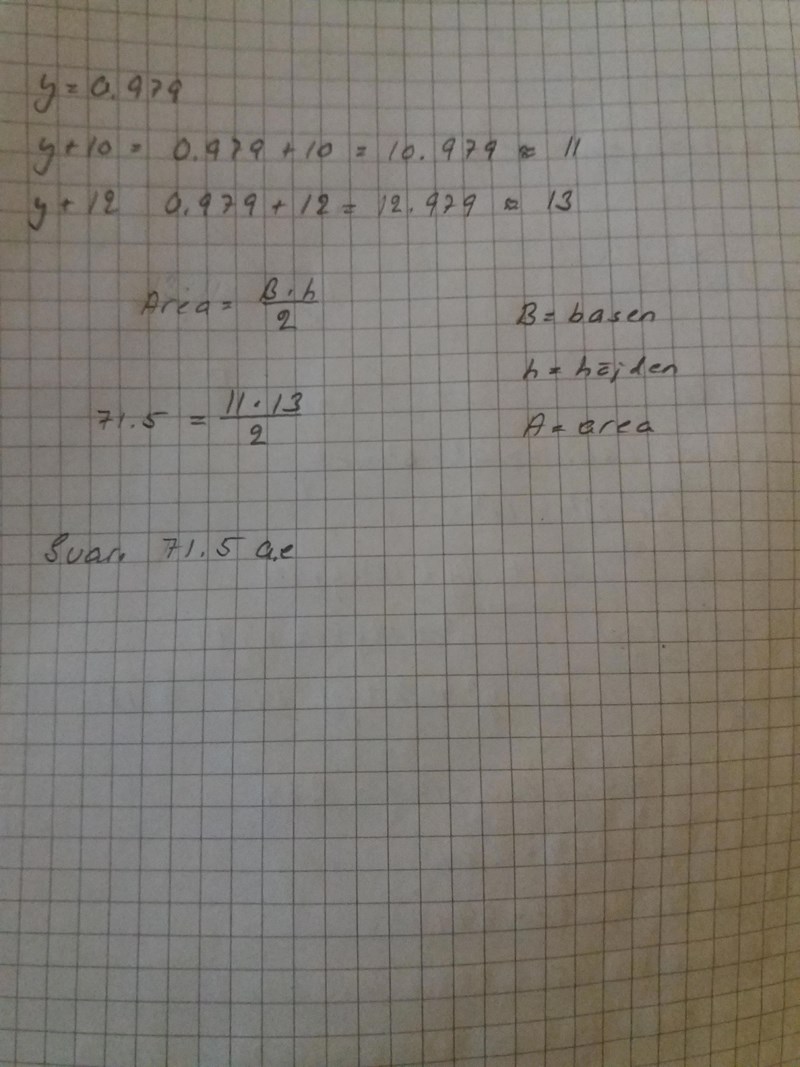 y = 0.979
y + 10 = 0.979 + 10 = 10.979 ≈ 11
y + 12 0.979 + 12 = 12.979 ≈ 13
Area = B · h / 2
B = basen
h = höjden
71.5 = 11 · 13 / 2
A = area
Svar. 71.5 a.e